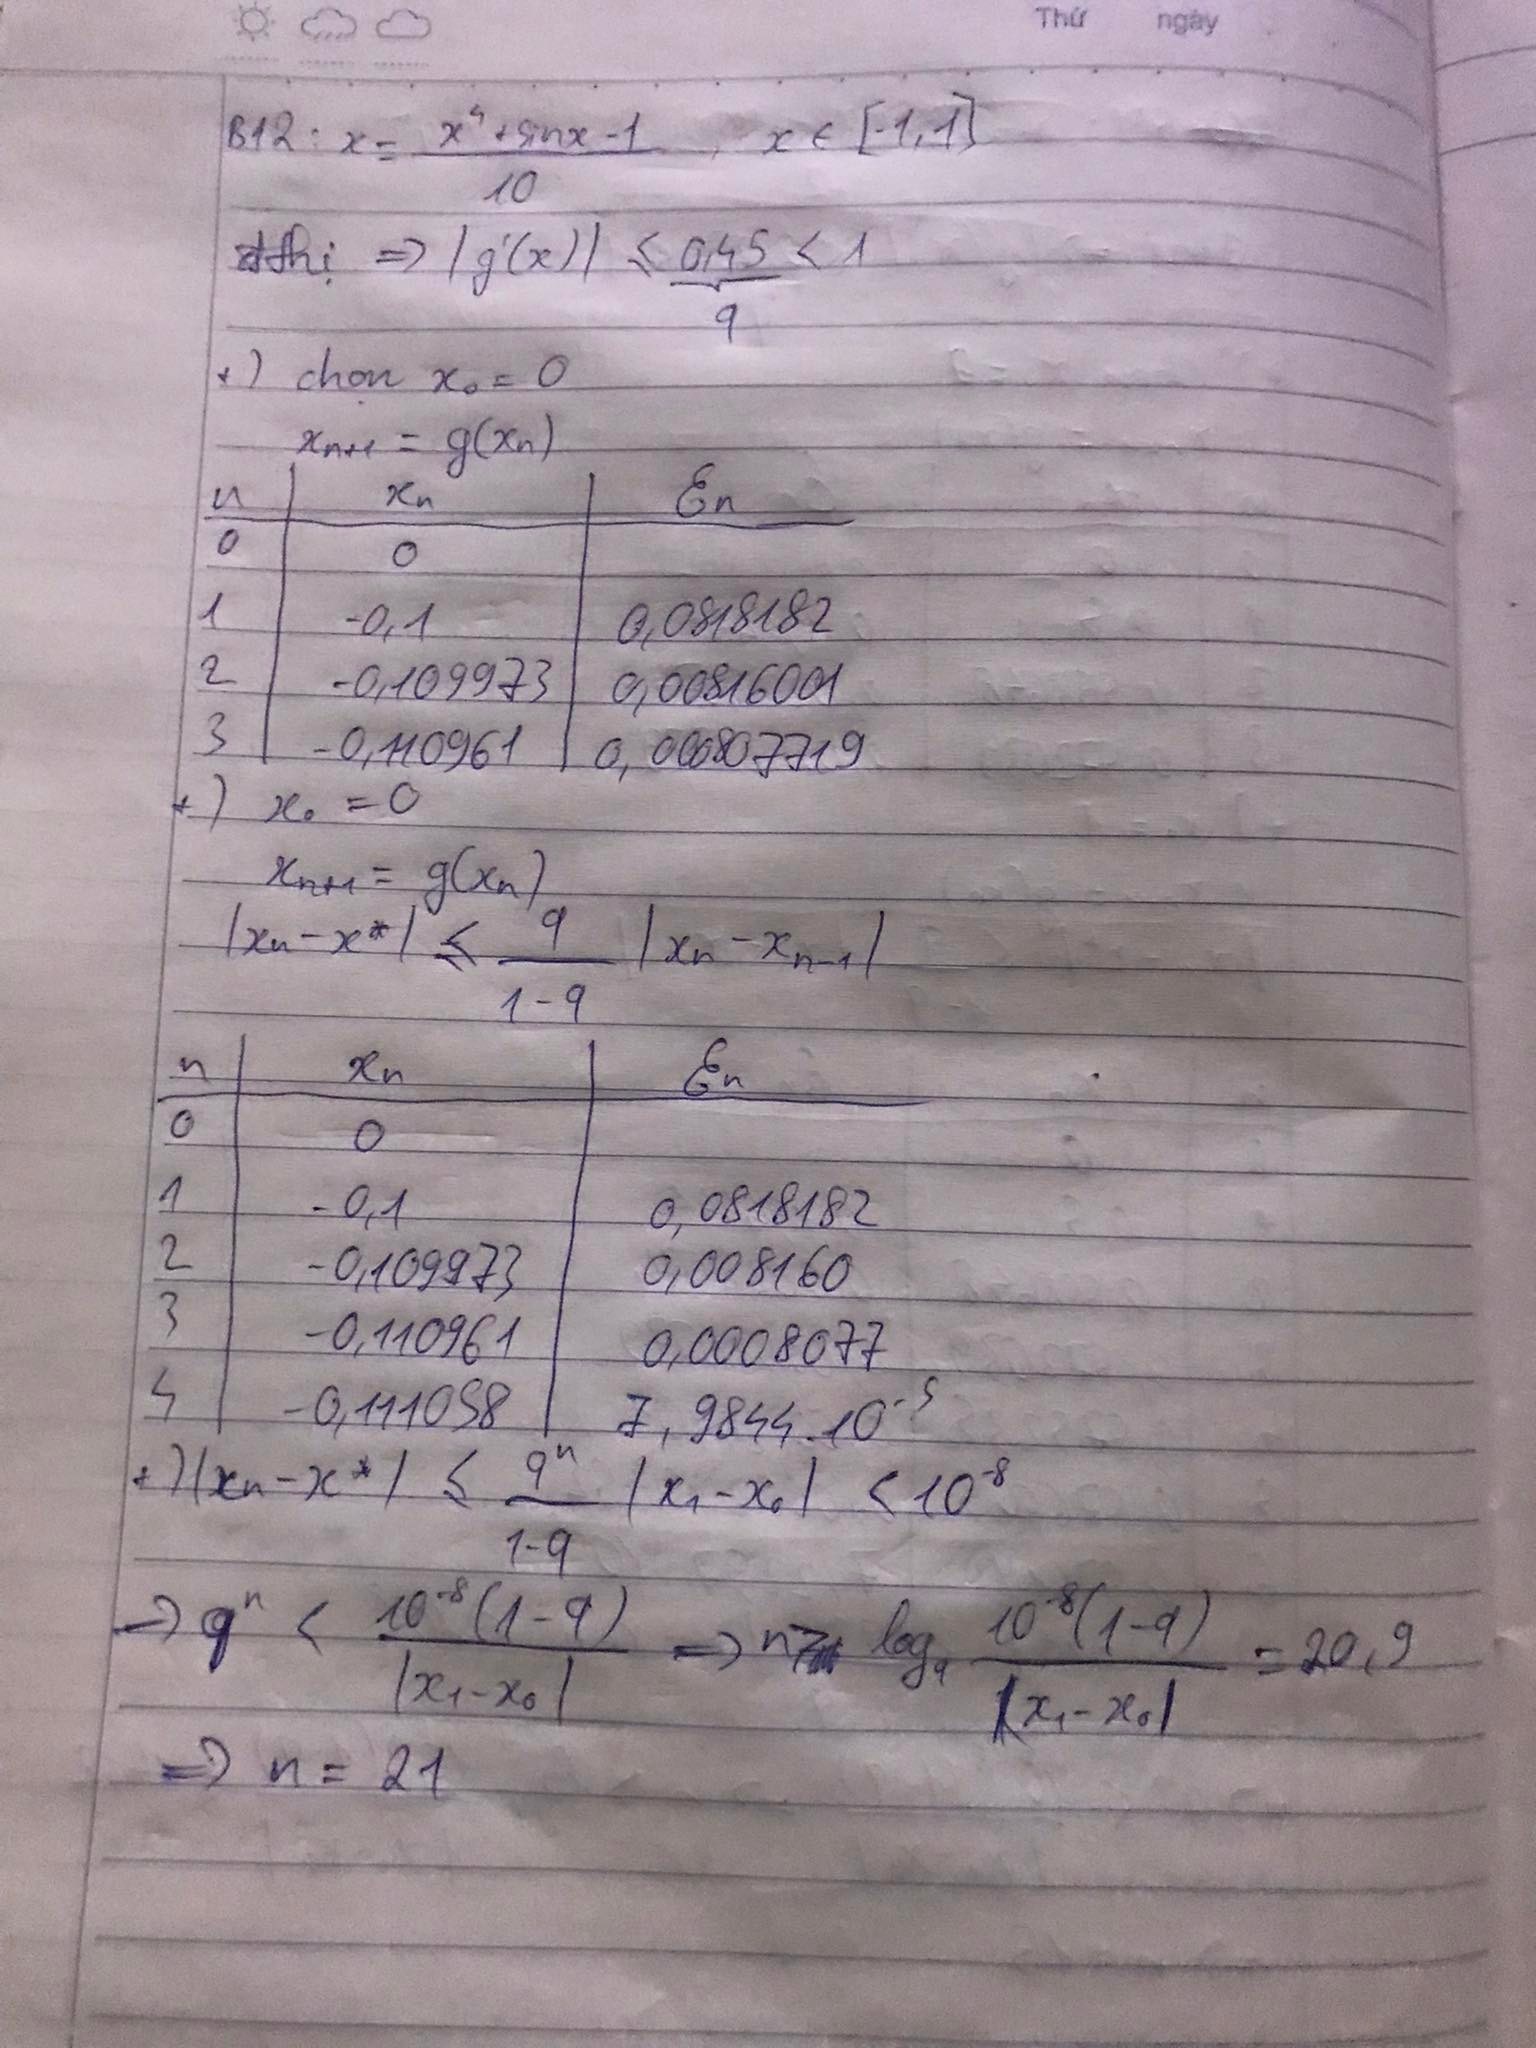 Thứ ngày
B12: x = (x⁴ + sinx - 1)/10 , x ∈ [-1,1]
đthị => |g'(x)| ≤ 0,45 < 1
q
+) chọn x₀ = 0
xₙ₊₁ = g(xₙ)
n xₙ Ɛₙ
0 0
1 -0,1 0,0818182
2 -0,109973 0,00816001
3 -0,110961 0,000807719
+) x₀ = 0
xₙ₊₁ = g(xₙ)
|xₙ - x*| ≤ q/(1-q) |xₙ - xₙ₋₁|
n xₙ Ɛₙ
0 0
1 -0,1 0,0818182
2 -0,109973 0,008160
3 -0,110961 0,0008077
4 -0,111058 7,9844.10⁻⁵
+) |xₙ - x*| ≤ qⁿ/(1-q) |x₁ - x₀| < 10⁻⁸
=> qⁿ < 10⁻⁸(1-q)/|x₁ - x₀| => n > log_q 10⁻⁸(1-q)/|x₁ - x₀| = 20,9
=> n = 21